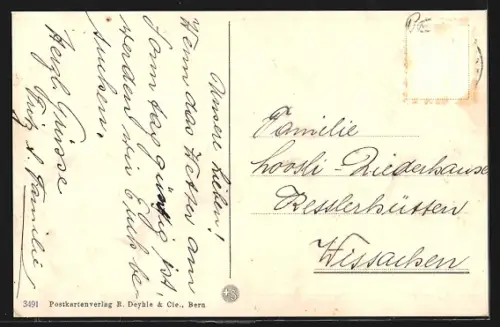 Unsere Lieben!
Wenn das Wetter am
Sonntag günstig ist,
werden wir Euch be-
suchen.
Herzl. Grüsse
Fritz & Familie
Familie
Looski-Niederhause
Kesslerhütten
Wissachen
3491 Postkartenverlag R. Deyhle & Cie., Bern